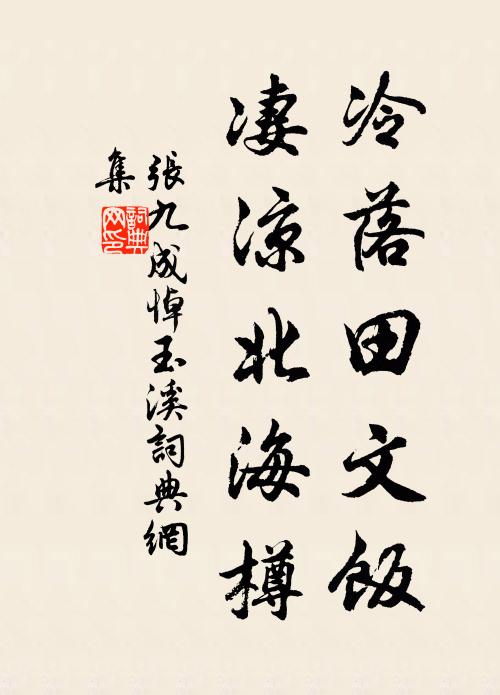 冷落田文飯
凄涼北海樽
張九成悼玉溪詞典網
集
詞典网印